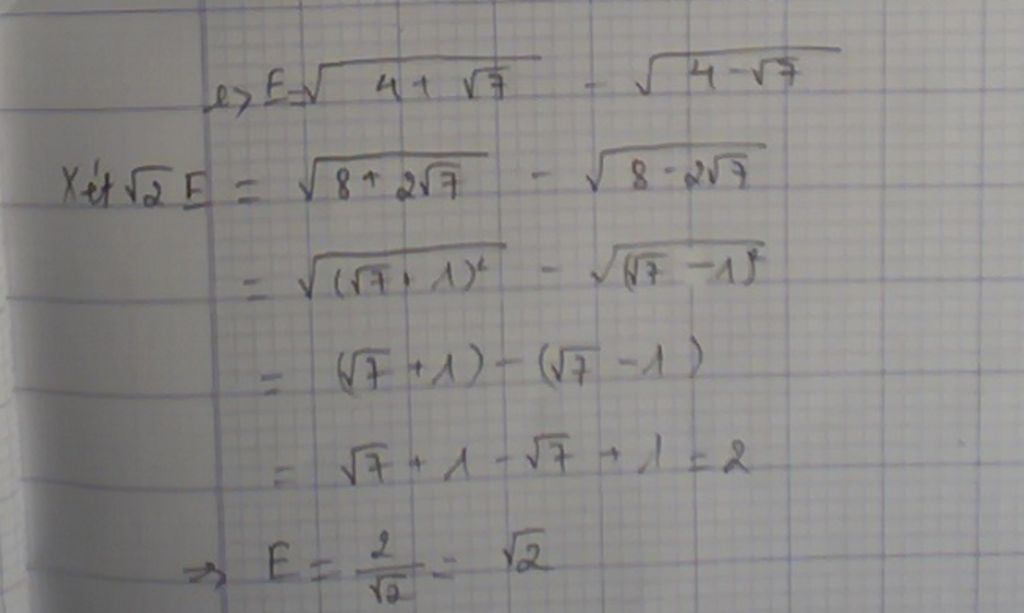 e> E = √(4 + √7) - √(4 - √7)
Xét √2 E = √(8 + 2√7) - √(8 - 2√7)
= √((√7 + 1)²) - √((√7 - 1)²)
= (√7 + 1) - (√7 - 1)
= √7 + 1 - √7 + 1 = 2
⇒ E = 2/√2 = √2